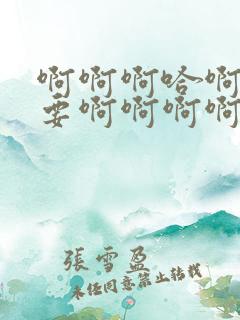 啊啊啊哈啊
要啊啊啊啊
張雪盈
未经同意禁止转载